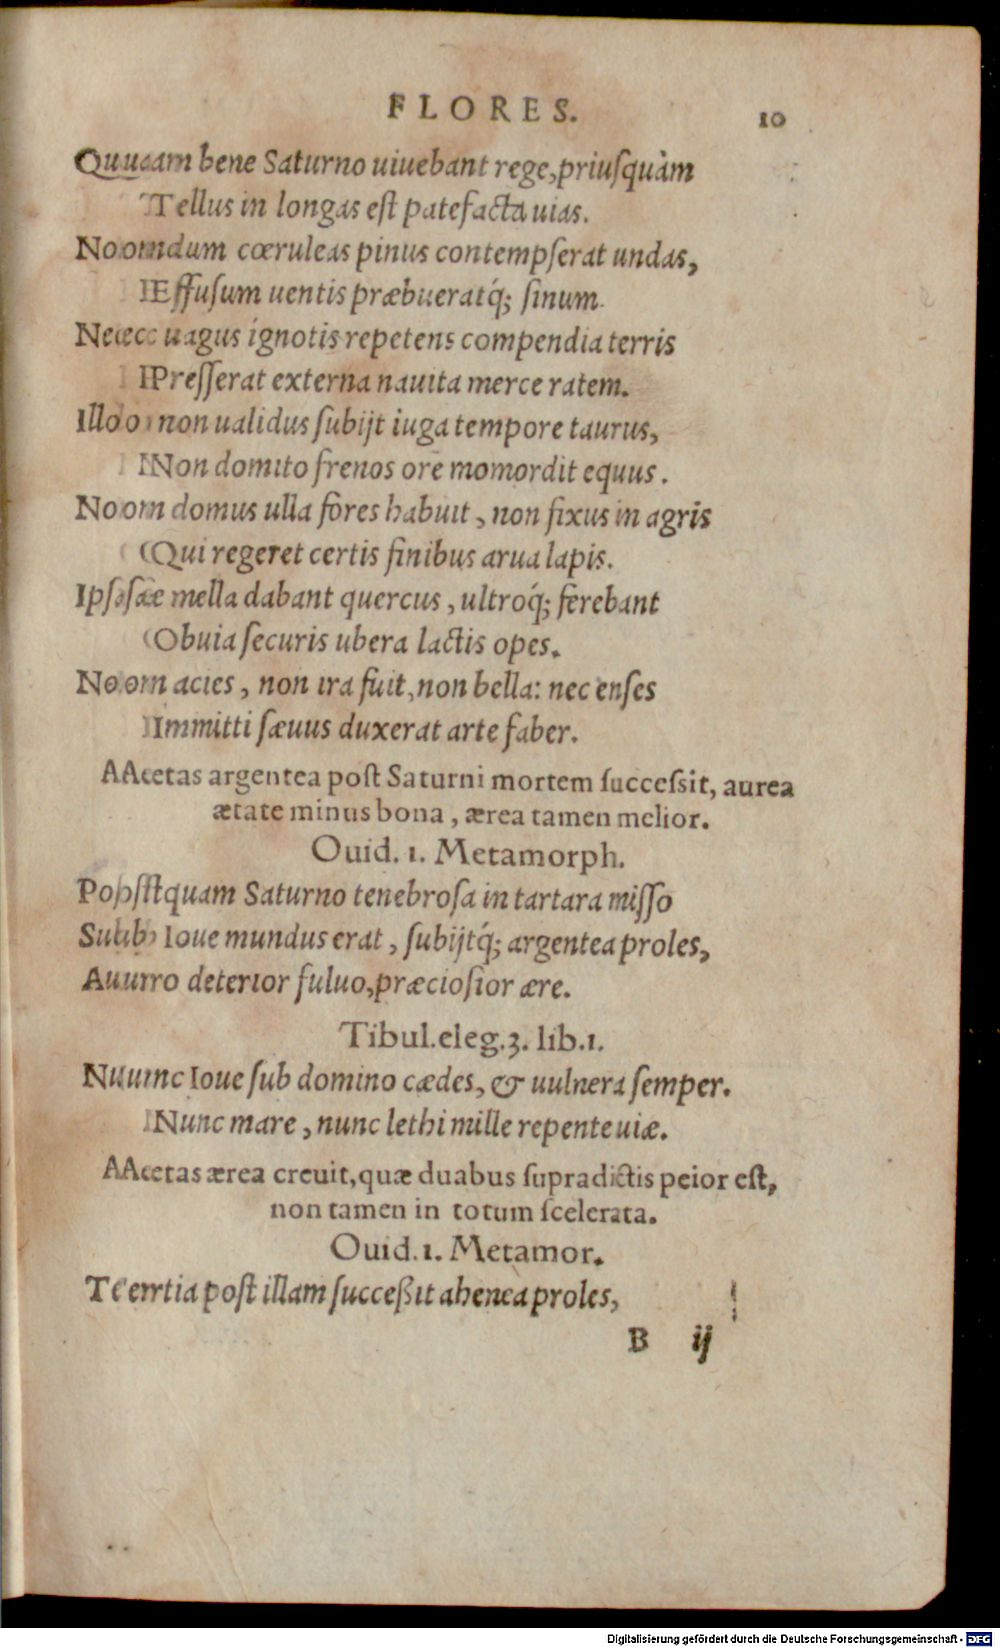 FLORES. 10
Quàm bene Saturno uiuebant rege, priusquàm
Tellus in longas est patefacta uias.
Nondum cœruleas pinus contempserat undas,
Effusum uentis præbueratq́; sinum.
Nec uagus ignotis repetens compendia terris
Presserat externa nauita merce ratem.
Illo non ualidus subijt iuga tempore taurus,
Non domito frenos ore momordit equus.
Non domus ulla fores habuit, non fixus in agris
Qui regeret certis finibus arua lapis.
Ipsæ mella dabant quercus, ultroq́; ferebant
Obuia securis ubera lactis opes.
Non acies, non ira fuit, non bella: nec enses
Immitti sæuus duxerat arte faber.
Aetas argentea post Saturni mortem successit, aurea
ætate minus bona, ærea tamen melior.
Ouid. 1. Metamorph.
Postquam Saturno tenebrosa in tartara misso
Sub Ioue mundus erat, subijtq́; argentea proles,
Auro deterior fuluo, præciosior ære.
Tibul. eleg. 3. lib. 1.
Nunc Ioue sub domino cædes, & uulnera semper.
Nunc mare, nunc lethi mille repente uiæ.
Aetas ærea creuit, quæ duabus supradictis peior est,
non tamen in totum scelerata.
Ouid. 1. Metamor.
Tertia post illam succeßit ahenea proles,
B ij
Digitalisierung gefördert durch die Deutsche Forschungsgemeinschaft - DFG